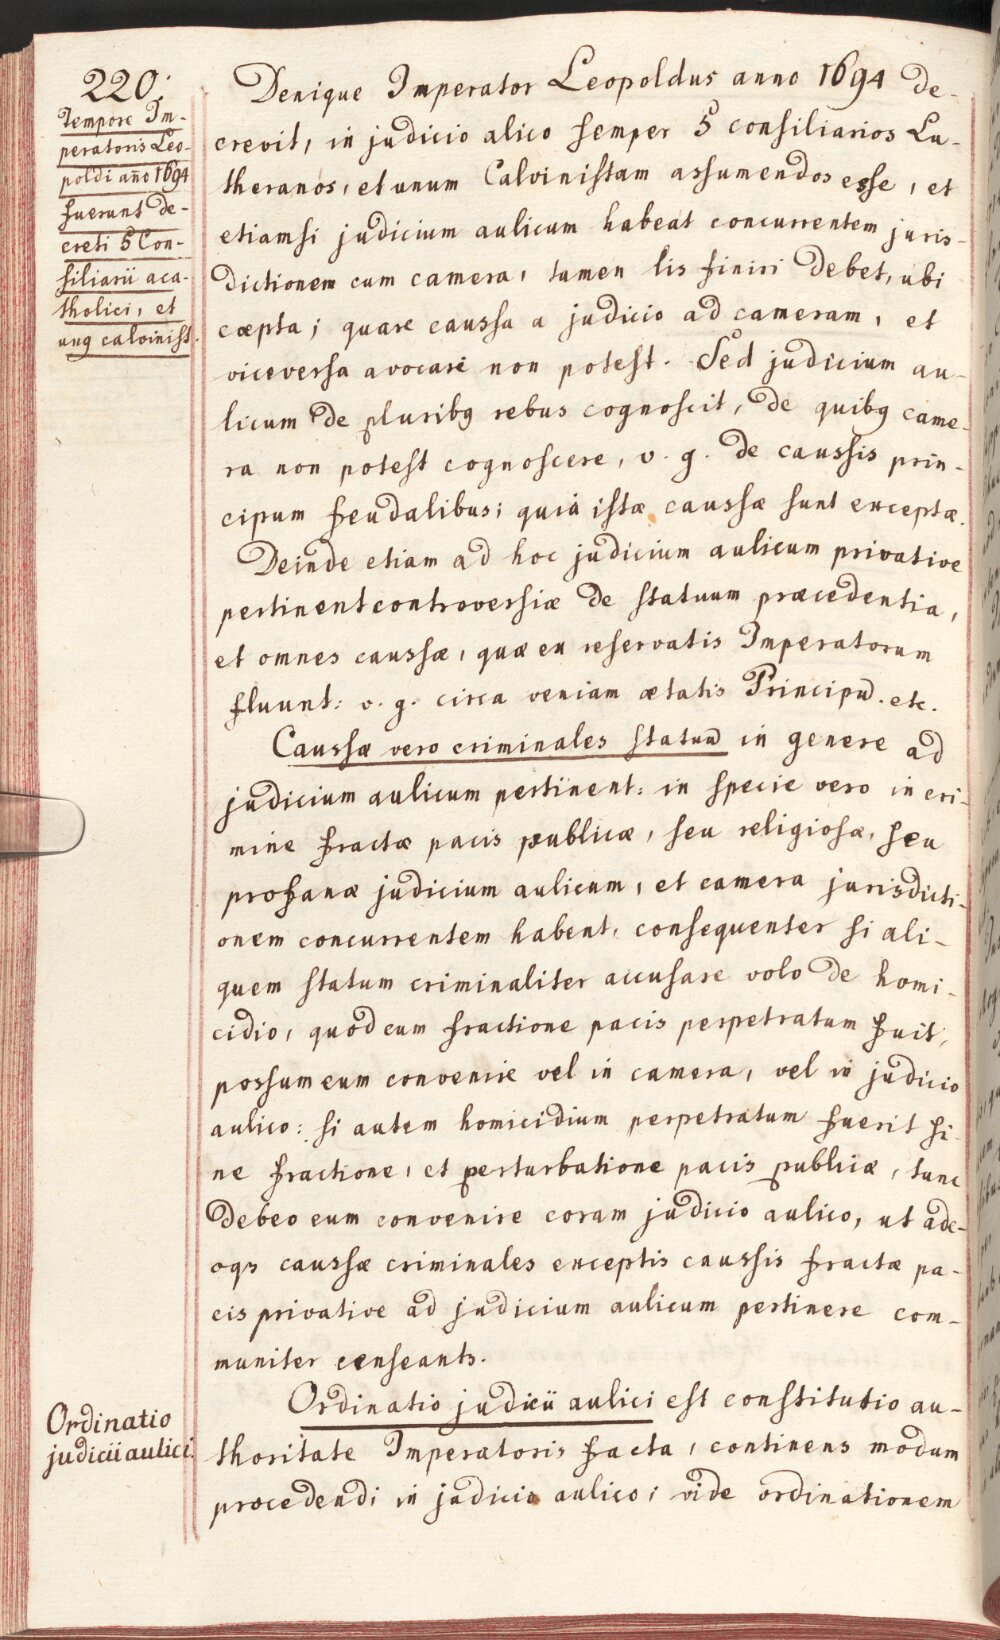 220.
Tempore Im-
peratoris Leo-
poldi año 1694
fuerunt De-
creti 5 Con-
siliarii aca-
tholici, et
unꝯ calvinist.
Denique Imperator Leopoldus anno 1694 de-
crevit, in judicio alico semper 5 consiliarios Lu-
theranos, et unum Calvinistam assumendos esse, et
etiamsi judicium aulicum habeat concurrentem juris-
dictionem cum camera, tamen lis finiri debet, ubi
cœpta; quare caussa a judicio ad cameram, et
viceversa avocari non potest. Sed judicium au-
licum de pluribꝯ rebus cognoscit, de quibꝯ came-
ra non potest cognoscere, v. g. de caussis prin-
cipum feudalibus; quia istæ caussæ sunt exceptæ.
Deinde etiam ad hoc judicium aulicum privative
pertinent controversiæ de statuum præcedentia,
et omnes caussæ, quæ ex reservatis Imperatorum
fluunt: v. g. circa veniam ætatis Principũ. etc.
Caussæ vero criminales statuũ in genere ad
judicium aulicum pertinent: in specie vero in cri-
mine fractæ pacis publicæ, seu religiosæ, seu
profanæ judicium aulicum, et camera jurisdicti-
onem concurrentem habent, consequenter si ali-
quem statum criminaliter accusare volo de homi-
cidio, quod cum fractione pacis perpetratum fuit,
possum eum convenire vel in camera, vel in judicio
aulico: si autem homicidium perpetratum fuerit si-
ne fractione, et perturbatione pacis publicæ, tunc
debeo eum convenire coram judicio aulico, ut ade-
oqꝫ caussæ criminales exceptis caussis fractæ pa-
cis privative ad judicium aulicum pertinere com-
muniter censeants.
Ordinatio
judicii aulici.
Ordinatio judicii aulici est constitutio au-
thoritate Imperatoris facta, continens modum
procedendi in judicio aulico; vide ordinationem